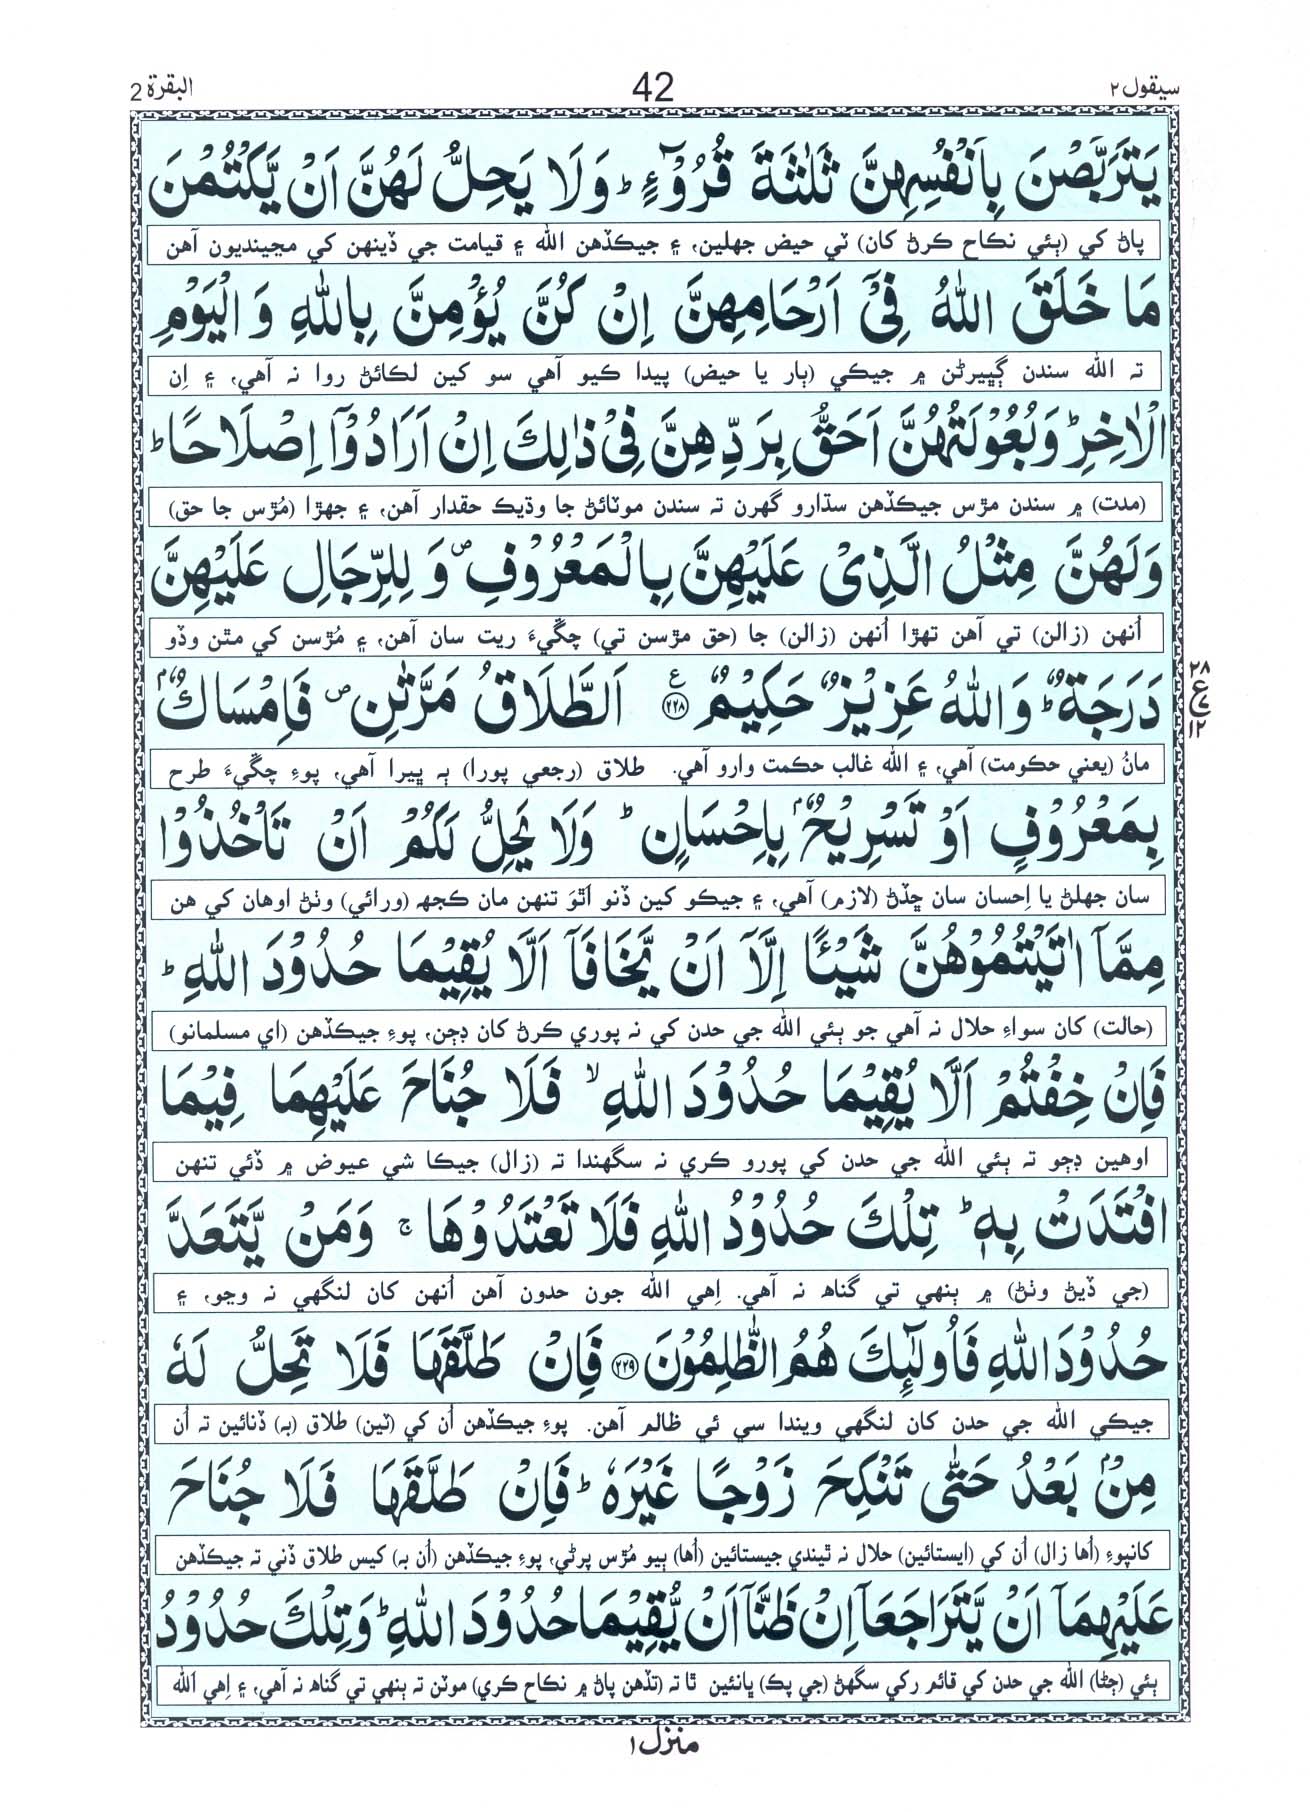 سيقول ٢ 42 البقرة 2
يَتَرَبَّصْنَ بِاَنْفُسِهِنَّ ثَلٰثَةَ قُرُوْٓءٍ ؕ وَلَا يَحِلُّ لَهُنَّ اَنْ يَّكْتُمْنَ
پاڻ کي (ٻئي نڪاح ڪرڻ کان) ٽي حيض جهلين، ۽ جيڪڏهن الله ۽ قيامت جي ڏينهن کي مڃينديون آهن
مَا خَلَقَ اللّٰهُ فِيْٓ اَرْحَامِهِنَّ اِنْ كُنَّ يُؤْمِنَّ بِاللّٰهِ وَ الْيَوْمِ
تہ الله سندن ڳڀيرڻن ۾ جيڪي (ٻار يا حيض) پيدا ڪيو آهي سو کين لڪائڻ روا نہ آهي، ۽ اِن
الْاٰخِرِ ؕ وَبُعُوْلَتُهُنَّ اَحَقُّ بِرَدِّهِنَّ فِيْ ذٰلِكَ اِنْ اَرَادُوْٓا اِصْلَاحًا ؕ
(مدت) ۾ سندن مڙس جيڪڏهن سڌارو گهرن تہ سندن موٽائڻ جا وڌيڪ حقدار آهن، ۽ جهڙا (مُڙس جا حق)
وَلَهُنَّ مِثْلُ الَّذِيْ عَلَيْهِنَّ بِالْمَعْرُوْفِ ۪ وَ لِلرِّجَالِ عَلَيْهِنَّ
اُنهن (زالن) تي آهن تهڙا اُنهن (زالن) جا (حق مڙسن تي) چڱيءَ ريت سان آهن، ۽ مُڙسن کي مٿن وڏو
دَرَجَةٌ ؕ وَاللّٰهُ عَزِيْزٌ حَكِيْمٌ ۧ‏﴿٢٢٨﴾ اَلطَّلَاقُ مَرَّتٰنِ ۪ فَاِمْسَاكٌۢ
٢٨ ع ١٢
مانُ (يعني حڪومت) آهي، ۽ الله غالب حڪمت وارو آهي. طلاق (رجعي پورا) ٻہ ڀيرا آهي، پوءِ چڱيءَ طرح
بِمَعْرُوْفٍ اَوْ تَسْرِيْحٌۢ بِاِحْسَانٍ ؕ وَلَا يَحِلُّ لَكُمْ اَنْ تَاْخُذُوْا
سان جهلڻ يا اِحسان سان ڇڏڻ (لازم) آهي، ۽ جيڪو کين ڏنو اَٿَوَ تنهن مان ڪجهہ (ورائي) وٺڻ اوهان کي هن
مِمَّآ اٰتَيْتُمُوْهُنَّ شَيْـًٔا اِلَّآ اَنْ يَّخَافَآ اَلَّا يُقِيْمَا حُدُوْدَ اللّٰهِ ؕ
(حالت) کان سواءِ حلال نہ آهي جو ٻئي الله جي حدن کي نہ پوري ڪرڻ کان ڊڄن، پوءِ جيڪڏهن (اي مسلمانو)
فَاِنْ خِفْتُمْ اَلَّا يُقِيْمَا حُدُوْدَ اللّٰهِ ۙ فَلَا جُنَاحَ عَلَيْهِمَا فِيْمَا
اوهين ڊڄو تہ ٻئي الله جي حدن کي پورو ڪري نہ سگهندا تہ (زال) جيڪا شي عيوض ۾ ڏئي تنهن
افْتَدَتْ بِهٖ ؕ تِلْكَ حُدُوْدُ اللّٰهِ فَلَا تَعْتَدُوْهَا ۚ وَمَنْ يَّتَعَدَّ
(جي ڏيڻ وٺڻ) ۾ ٻنهي تي گناھ نہ آهي. اِهي الله جون حدون آهن اُنهن کان لنگهي نہ وڃو، ۽
حُدُوْدَ اللّٰهِ فَاُولٰٓئِكَ هُمُ الظّٰلِمُوْنَ ﴿٢٢٩﴾ فَاِنْ طَلَّقَهَا فَلَا تَحِلُّ لَهٗ
جيڪي الله جي حدن کان لنگهي ويندا سي ئي ظالم آهن. پوءِ جيڪڏهن اُن کي (ٽين) طلاق (بہ) ڏنائين تہ اُن
مِنْۢ بَعْدُ حَتّٰى تَنْكِحَ زَوْجًا غَيْرَهٗ ؕ فَاِنْ طَلَّقَهَا فَلَا جُنَاحَ
کانپوءِ (اُها زال) اُن کي (ايستائين) حلال نہ ٿيندي جيستائين (اُها) ٻيو مُڙس پرڻي، پوءِ جيڪڏهن (اُن بہ) کيس طلاق ڏني تہ جيڪڏهن
عَلَيْهِمَآ اَنْ يَّتَرَاجَعَآ اِنْ ظَنَّآ اَنْ يُّقِيْمَا حُدُوْدَ اللّٰهِ ؕ وَتِلْكَ حُدُوْدُ
ٻئي (ڄڻا) الله جي حدن کي قائم رکي سگهڻ (جي پڪ) ڀانئين ٿا تہ (تڏهن پاڻ ۾ نڪاح ڪري) موٽن تہ ٻنهي تي گناھ نہ آهي، ۽ اِهي اَلله
منزل ١